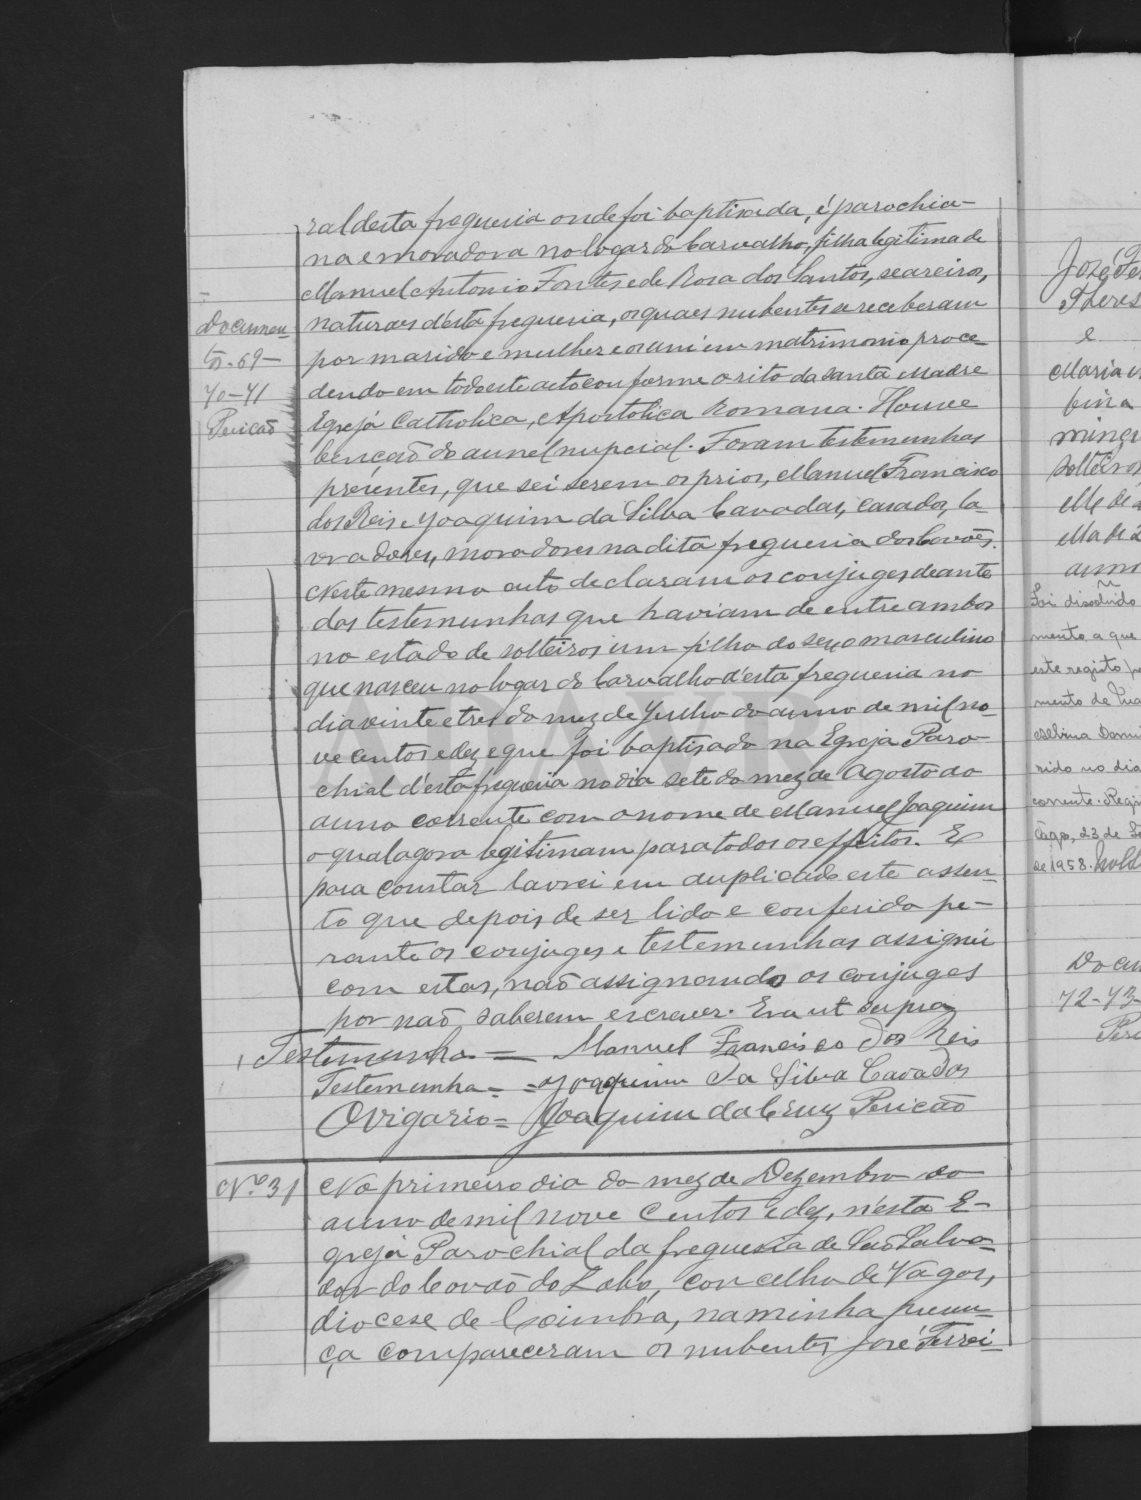 ral desta freguesia onde foi baptisada, é parochia-
na e moradora no logar do Carvalho, filha legitima de
Manuel Antonio Fontes e de Rosa dos Santos, seareiros,
naturaes d'esta freguesia, os quaes nubentes se receberam
por marido e mulher e os uni em matrimonio proce-
dendo em todo este acto conforme o rito da Santa Madre
Egreja Catholica, Apostolica Romana. Houve
benção do annel nupcial. Foram testemunhas
presentes, que sei serem os proprios, Manuel Francisco
dos Reis e Joaquim da Silva Cavadas, casados, la-
vradores, moradores na dita freguesia dos Covões.
Neste mesmo auto declaram os conjuges deante
das testemunhas que haviam de entre ambos
no estado de solteiros um filho do sexo masculino
que nasceu no logar do Carvalho d'esta freguesia no
dia vinte e tres do mez de Julho do anno de mil no-
ve centos e dez e que foi baptisado na Egreja Paro-
chial d'esta freguesia no dia sete do mez de Agosto do
anno corrente com o nome de Manuel Joaquim
o qual agora legitimam para todos os effeitos. E
para constar lavrei em duplicado este assen-
to que depois de ser lido e conferido pe-
rante os conjuges e testemunhas assignei
com estas, não assignando os conjuges
por não saberem escrever. Era ut supra
Testemunha = Manuel Francisco dos Reis
Testemunha = Joaquim da Silva Cavadas
O vigario = Joaquim da Cruz Pericão
Documen-
tos-69-
70-71
Pericão
Nº 31
No primeiro dia do mez de Dezembro do
anno de mil nove centos e dez, n'esta E-
greja Parochial da freguesia de São Salva-
dor do Covão do Lobo, concelho de Vagos,
diocese de Coimbra, na minha presen-
ça compareceram os nubentes José Ferrei-
José Fe
e
Maria
solteiros
Foi dissolvido
mento a que
este registo
mento de
nido no dia
corrente. Regi
23 de
de 1958.
Docu
72-73-
Peri